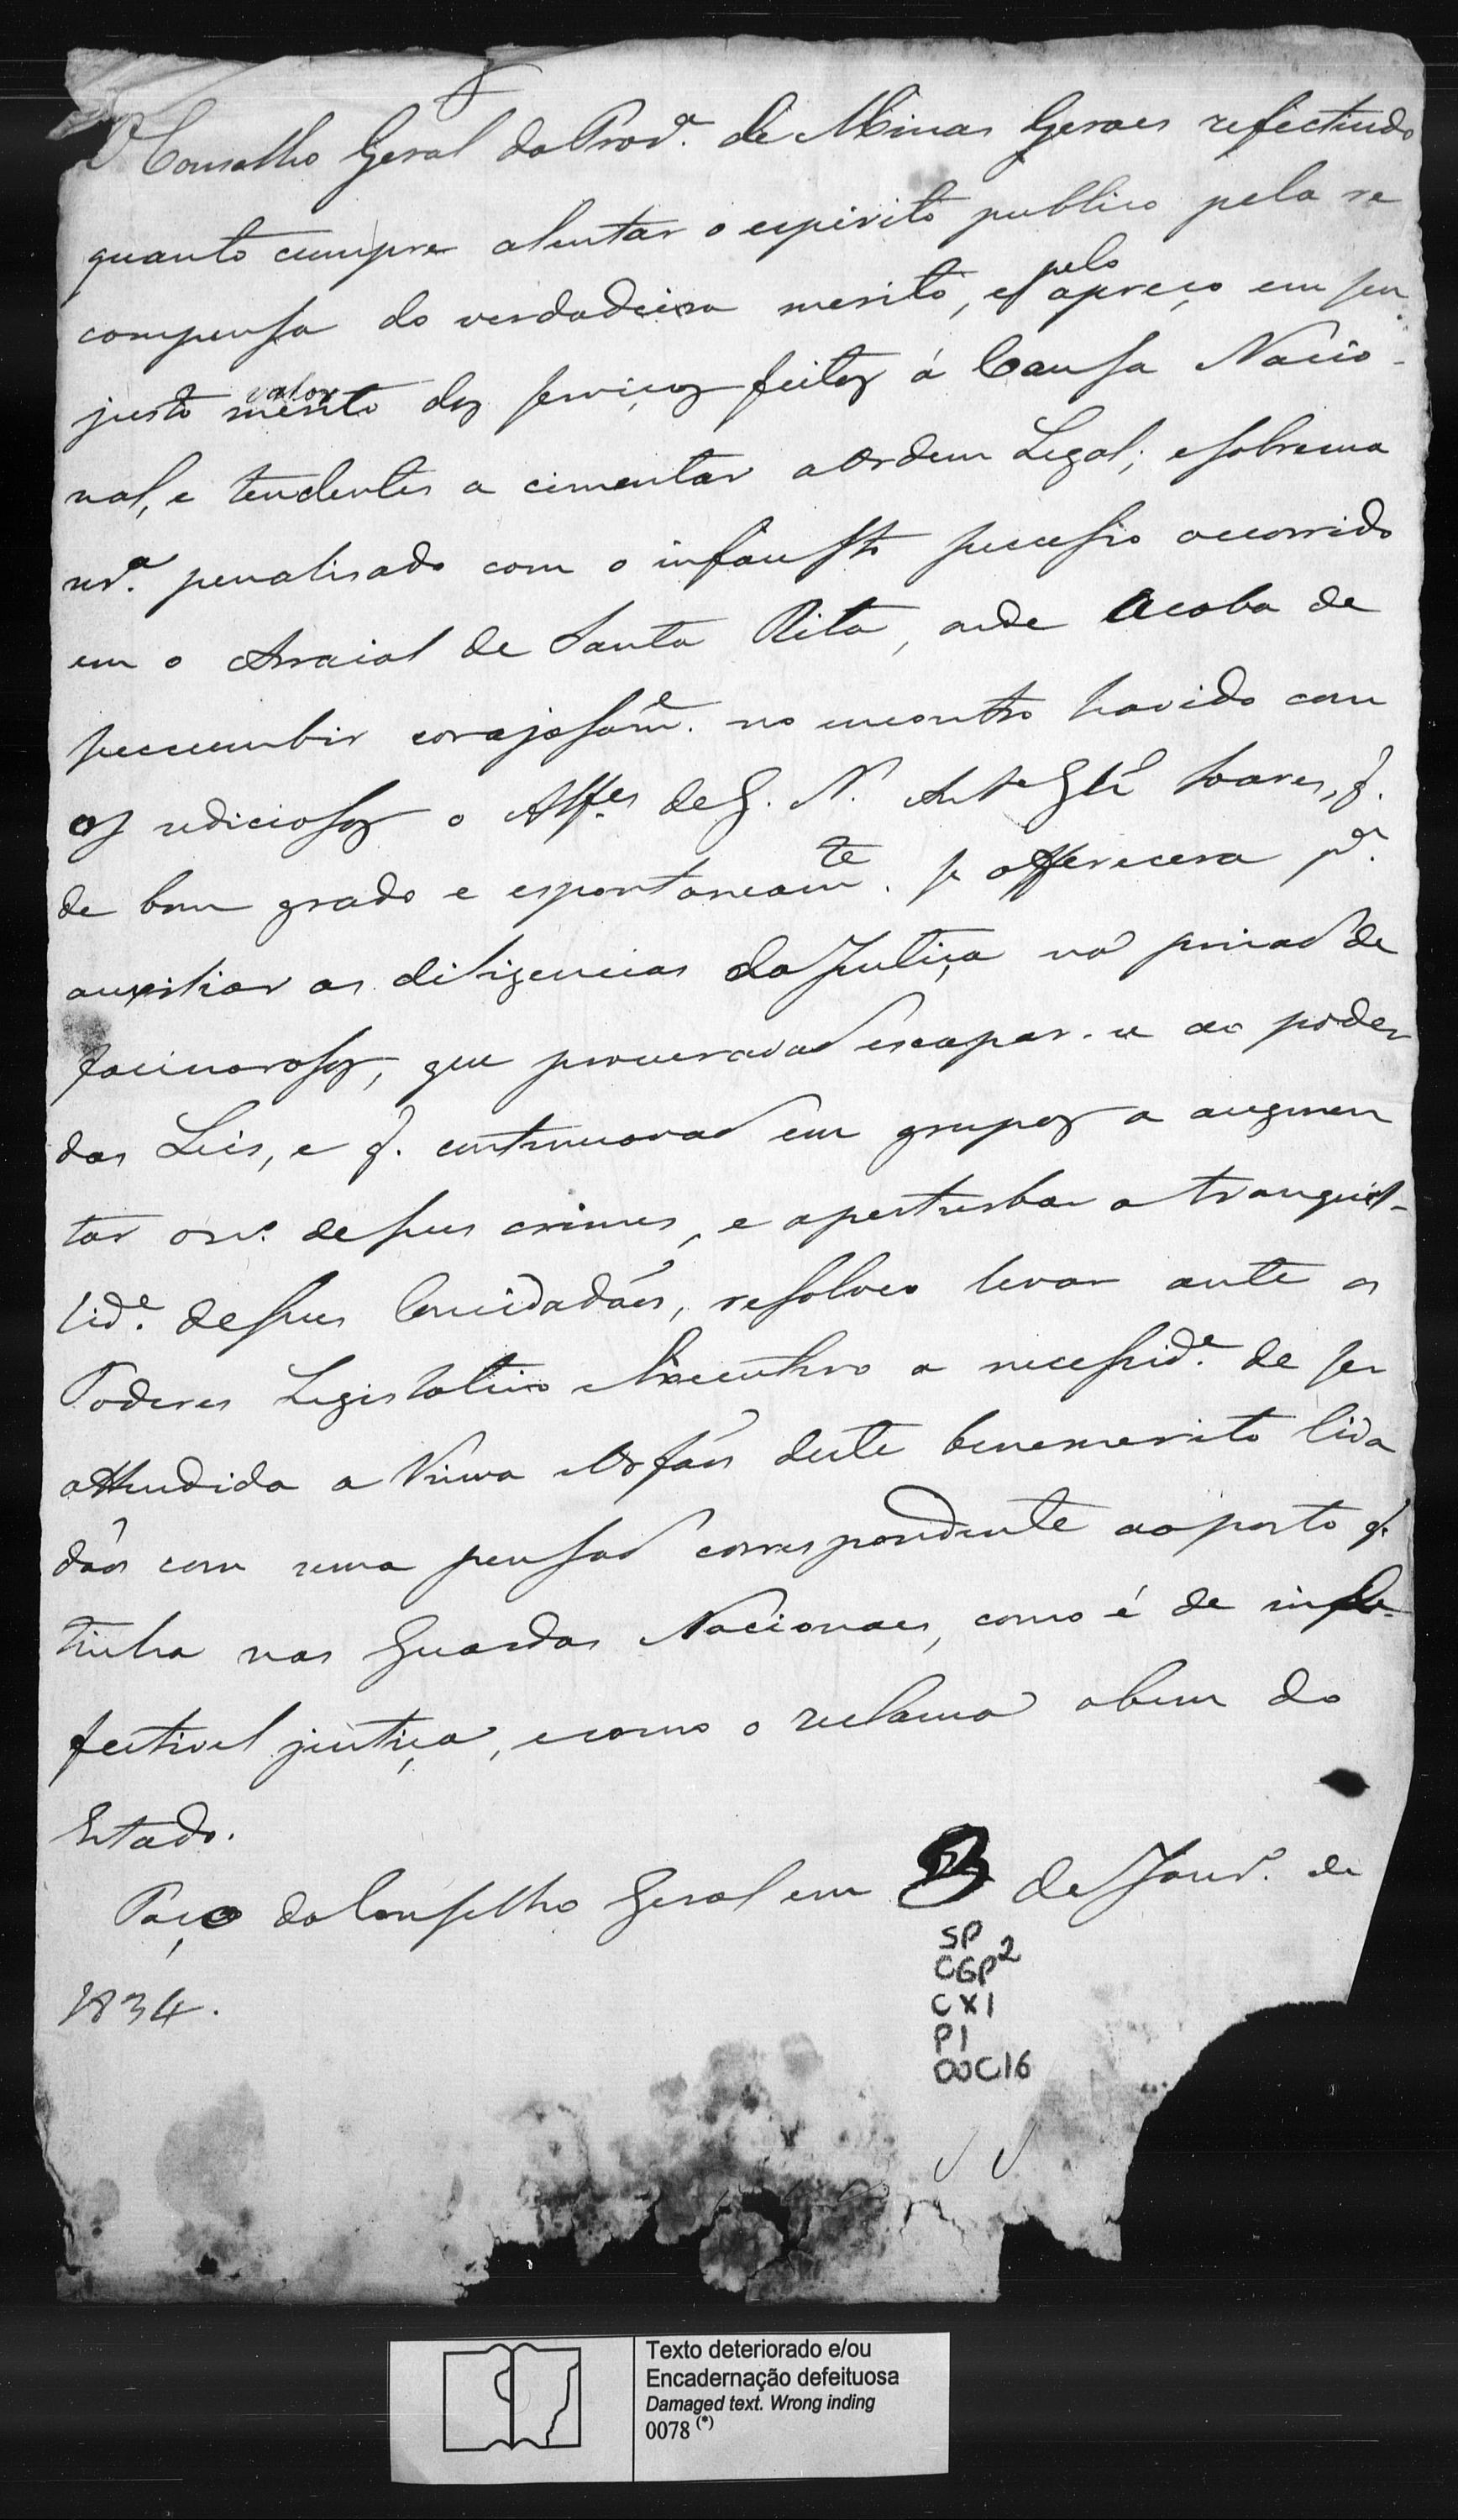 O Conselho Geral da Prov.ª de Minas Geraes reflectindo
quanto cumpre alentar o espirito publico pela re
compensa do verdadeiro merito, e pelo apreço em seu
justo valor merito dos serviços feitos á Causa Nacio-
nal, e tendentes a cimentar a Ordem Legal; e sobrema
nr.ª penalisado com o infausto successo occorrido
em o Arraial de Santa Rita, onde acaba de
succumbir corajosam.e no encontro havido com
os sediciosos o Alf.es de G. N. Soares, q.
de bom grado e espontaneam.te se offerecera p.ª
auxiliar as diligencias da Justiça na prisaõ de
facinorosos, que procuravaõ escapar-se ao poder
das Leis, e q. continuavaõ em grupos a augmen
tar o n.º de seus crimes, e a perturbar a tranquil-
lid.e de seus Concidadãos, resolveo levar ante os
Poderes Legislativo e Executivo a necessid.e de ser
attendida a Viuva e Orfãos deste benemerito Cida
dão com uma pensaõ correspondente ao posto q.
tinha nas Guardas Nacionaes, como é de
justiça, e como o reclama o bem do
Estado.
Paço do Conselho Geral em de Janr.º de
1834.
SP
CGP2
CX1
P1
DOC16
Texto deteriorado e/ou
Encadernação defeituosa
Damaged text. Wrong inding
0078 (*)